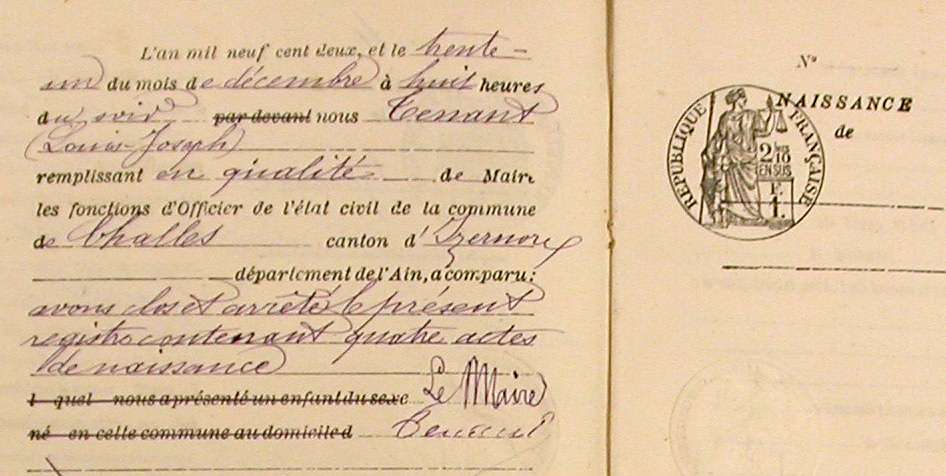 L'an mil neuf cent deux, et le trente-
un du mois de décembre à huit heures
du soir par devant nous Tenant
(Louis-Joseph)
remplissant en qualité de Maire
les fonctions d'Officier de l'état civil de la commune
de Challes canton d'Izernore
département de l'Ain, a comparu:
avons clos et arrêté le présent
registre contenant quatre actes
de naissance
l quel nous a présenté un enfant du sexe Le Maire
né en celle commune au domicile d Tenant
N°
NAISSANCE
de
RÉPUBLIQUE FRANÇAISE
2/10
EN SUS
F.
1.